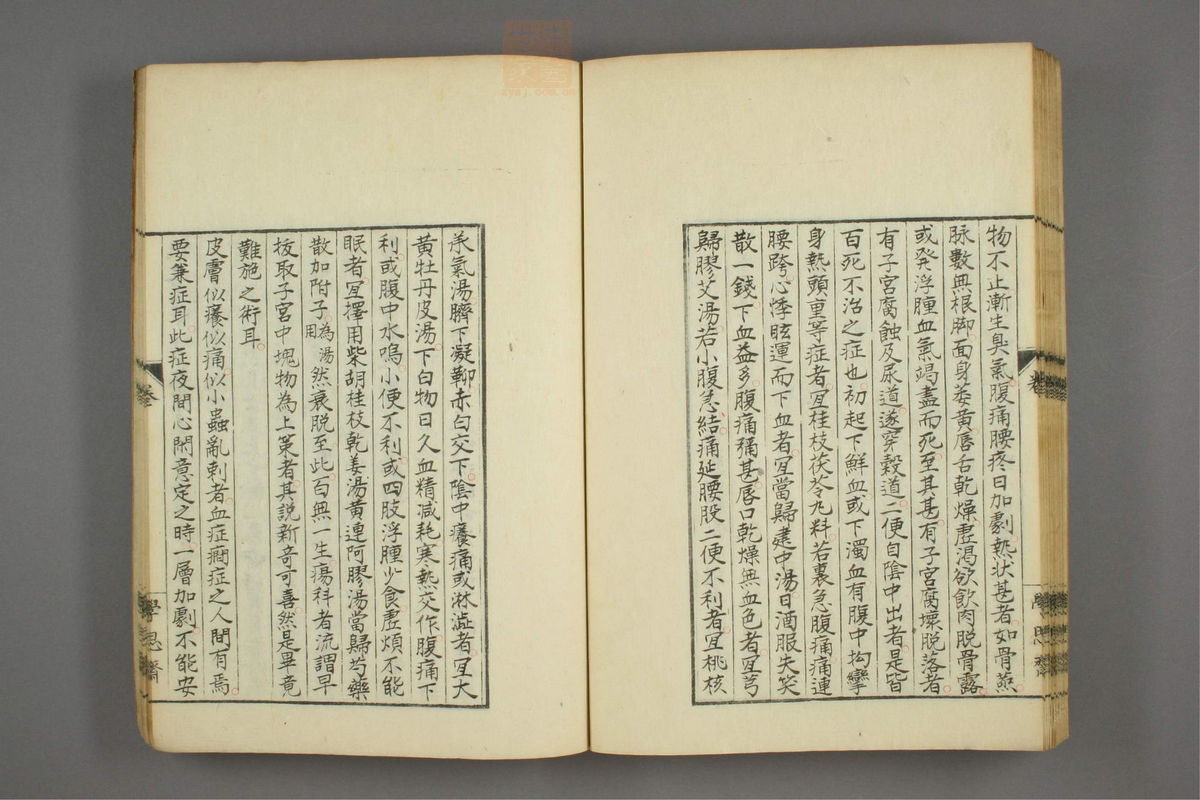 物不止漸生臭氣腹痛腰疼日加劇熱狀甚者如骨蒸
脉數無根脚面身萎黃唇舌乾燥虛渴欲飲肉脫骨露
或発浮腫血氣竭盡而死至其甚有子宮腐壞脫落者
有子宮腐蝕及尿道遂穿穀道二便自陰中出者是皆
百死不治之症也初起下鮮血或下濁血有腹中拘攣
身熱頭重等症者冝桂枝茯苓丸料若裏急腹痛痛連
腰跨心悸眩運而下血者冝當歸建中湯日酒服失笑
散一錢下血益多腹痛殫甚唇口乾燥無血色者冝芎
歸膠艾湯若小腹急結痛延腰股二便不利者冝桃核
承氣湯臍下凝鞕赤白交下陰中癢痛或淋澁者冝大
黃牡丹皮湯下白物日久血精減耗寒熱交作腹痛下
利或腹中水鳴小便不利或四肢浮腫少食虛煩不能
眠者冝擇用柴胡桂枝乾姜湯黃連阿膠湯當歸芍藥
散加附子為湯用然衰脫至此百無一生瘍科者流謂早
拔取子宮中塊物為上策者其説新奇可喜然是畢竟
難施之術耳
皮膚似癢似痛似小蟲亂刺者血症癇症之人間有焉
要兼症耳此症夜間心閑意定之時一層加劇不能安
卷
學思齋